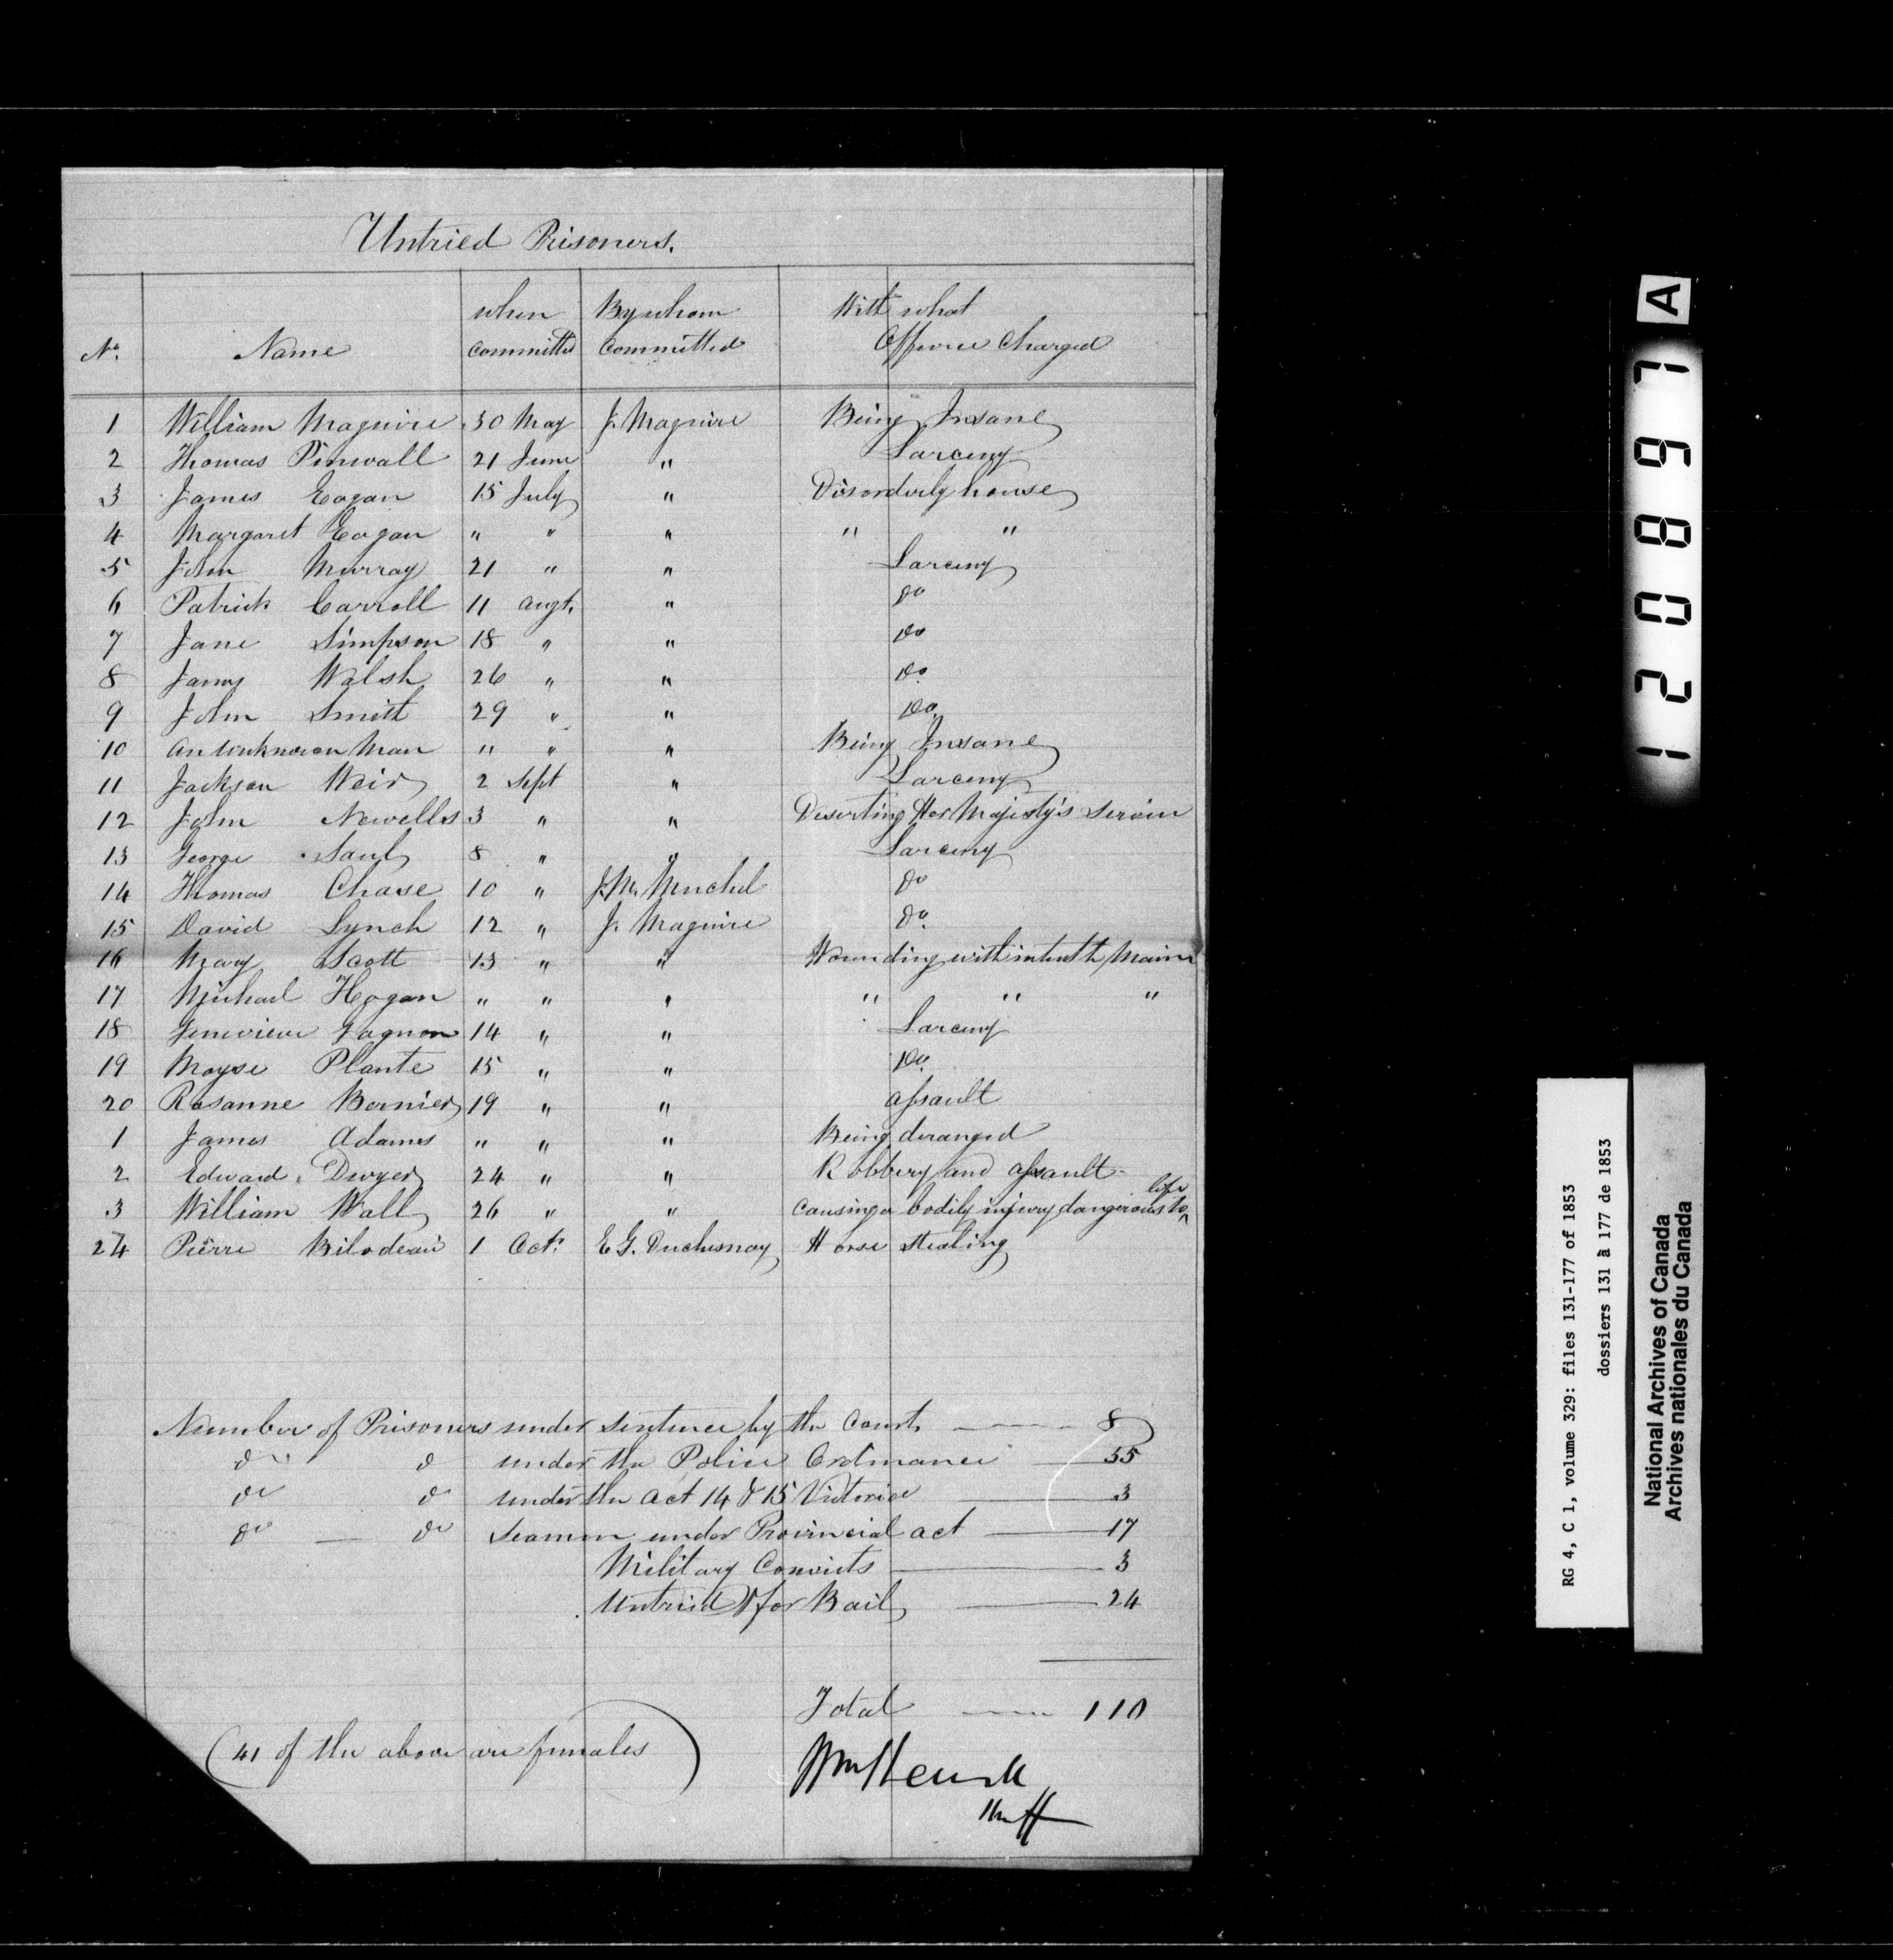 Untried Prisoners.
No. Name when committed By whom Committed With what Offence Charged
1 William Maguire 30 May J. Maguire Being Insane
2 Thomas Pinwall 21 June " Larceny
3 James Eagan 15 July " Disorderly house
4 Margaret Eagan " " " " "
5 John Murray 21 " " Larceny
6 Patrick Carroll 11 Augt. " do
7 Jane Simpson 18 " " Do
8 James Walsh 26 " " Do
9 John Smith 29 " " Do.
10 An Unknown Man " " " Being Insane
11 Jackson Weir 2 Sept " Larceny
12 John Newells 3 " " Deserting Her Majesty's Service
13 George Saul 8 " " Larceny
14 Thomas Chase 10 " do
15 David Lynch 12 " J. Maguire do.
16 Mary Scott 13 " " Wounding with intent to Maim
17 Michael Hogan " " " " " "
18 Genevieve Gagnon 14 " " Larceny
19 Moyse Plante 15 " " Do.
20 Rosanne Bernier 19 " " Assault
1 James Adams " " " Being deranged
2 Edward Dwyer 24 " " Robbery and Assault
3 William Wall 26 " " Causing a bodily injury dangerous to life
24 Pierre Bilodeau 1 Octr. E. G. Duchesnay Horse stealing
Number of Prisoners under sentence by the Court 8
do do under the Police Ordinance 55
do do under the Act 14 & 15 Victoria 3
do do Seamen under Provincial Act 17
Military Convicts 3
Untried & for Bail 24
Total 110
(41 of the above are females)
Sheriff
120897 A
RG 4, C 1, volume 329: files 131-177 of 1853
dossiers 131 à 177 de 1853
National Archives of Canada
Archives nationales du Canada